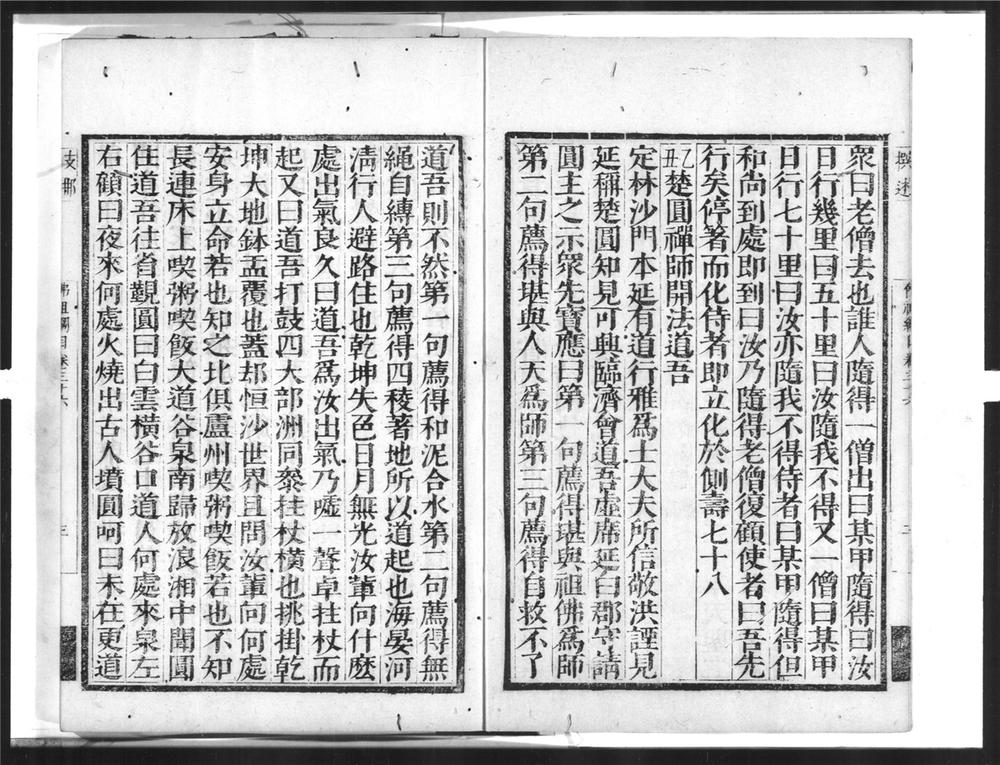 衆曰老僧去也誰人隨得一僧出曰某甲隨得曰汝
日行幾里曰五十里曰汝隨我不得又一僧曰某甲
日行七十里曰汝亦隨我不得侍者曰某甲隨得但
和尚到處即到曰汝乃隨得老僧復顧使者曰吾先
行矣停箸而化侍者即立化於側壽七十八
乙丑楚圓禪師開法道吾
定林沙門本延有道行雅爲士大夫所信敬洪諲見
延稱楚圓知見可興臨濟會道吾虛席延曰郡守請
圓主之示衆先寶應曰第一句薦得堪與祖佛爲師
第二句薦得堪與人天爲師第三句薦得自救不了
道吾則不然第一句薦得和泥合水第二句薦得無
繩自縛第三句薦得四稜著地所以道起也海晏河
清行人避路住也乾坤失色日月無光汝輩向什麼
處出氣良久曰道吾爲汝出氣乃噓一聲卓拄杖而
起又曰道吾打鼓四大部洲同叅拄杖橫也挑掛乾
坤大地鉢盂覆也蓋却恒沙世界且問汝輩向何處
安身立命若也知之北俱盧州喫粥喫飯若也不知
長連床上喫粥喫飯大道谷泉南歸放浪湘中聞圓
住道吾往省覲圓曰白雲橫谷口道人何處來泉左
右顧曰夜來何處火燒出古人墳圓呵曰未在更道
支那
佛祖綱目卷三十六
三